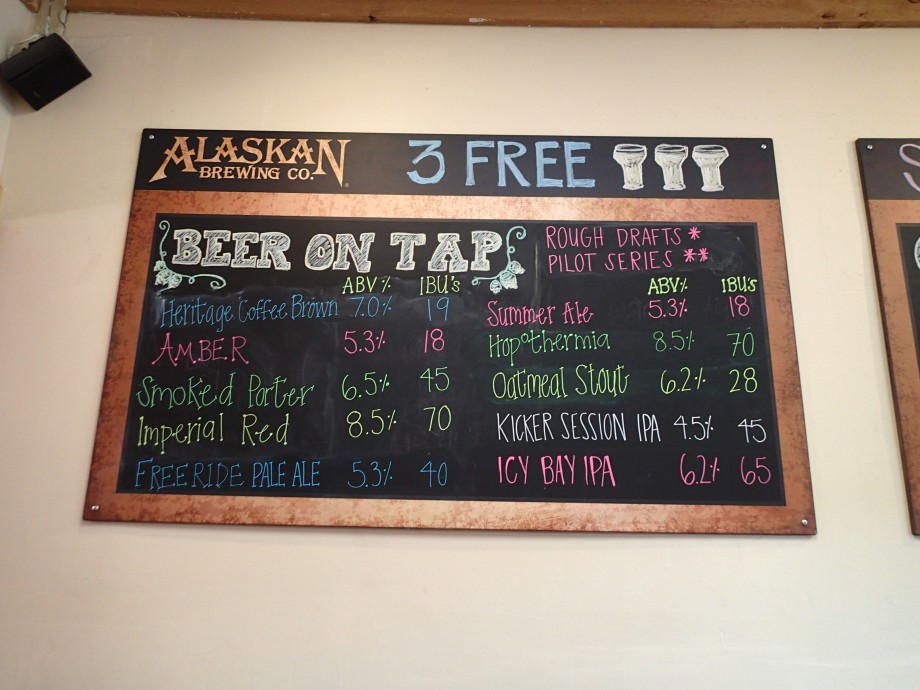 ALASKAN
BREWING CO.
3 FREE
BEER ON TAP
ROUGH DRAFTS *
PILOT SERIES **
ABV% IBU's
Heritage Coffee Brown 7.0% 19
AMBER 5.3% 18
Smoked Porter 6.5% 45
Imperial Red 8.5% 70
FREERIDE PALE ALE 5.3% 40
ABV% IBU's
Summer Ale 5.3% 18
Hopothermia 8.5% 70
Oatmeal Stout 6.2% 28
KICKER SESSION IPA 4.5% 45
ICY BAY IPA 6.2% 65